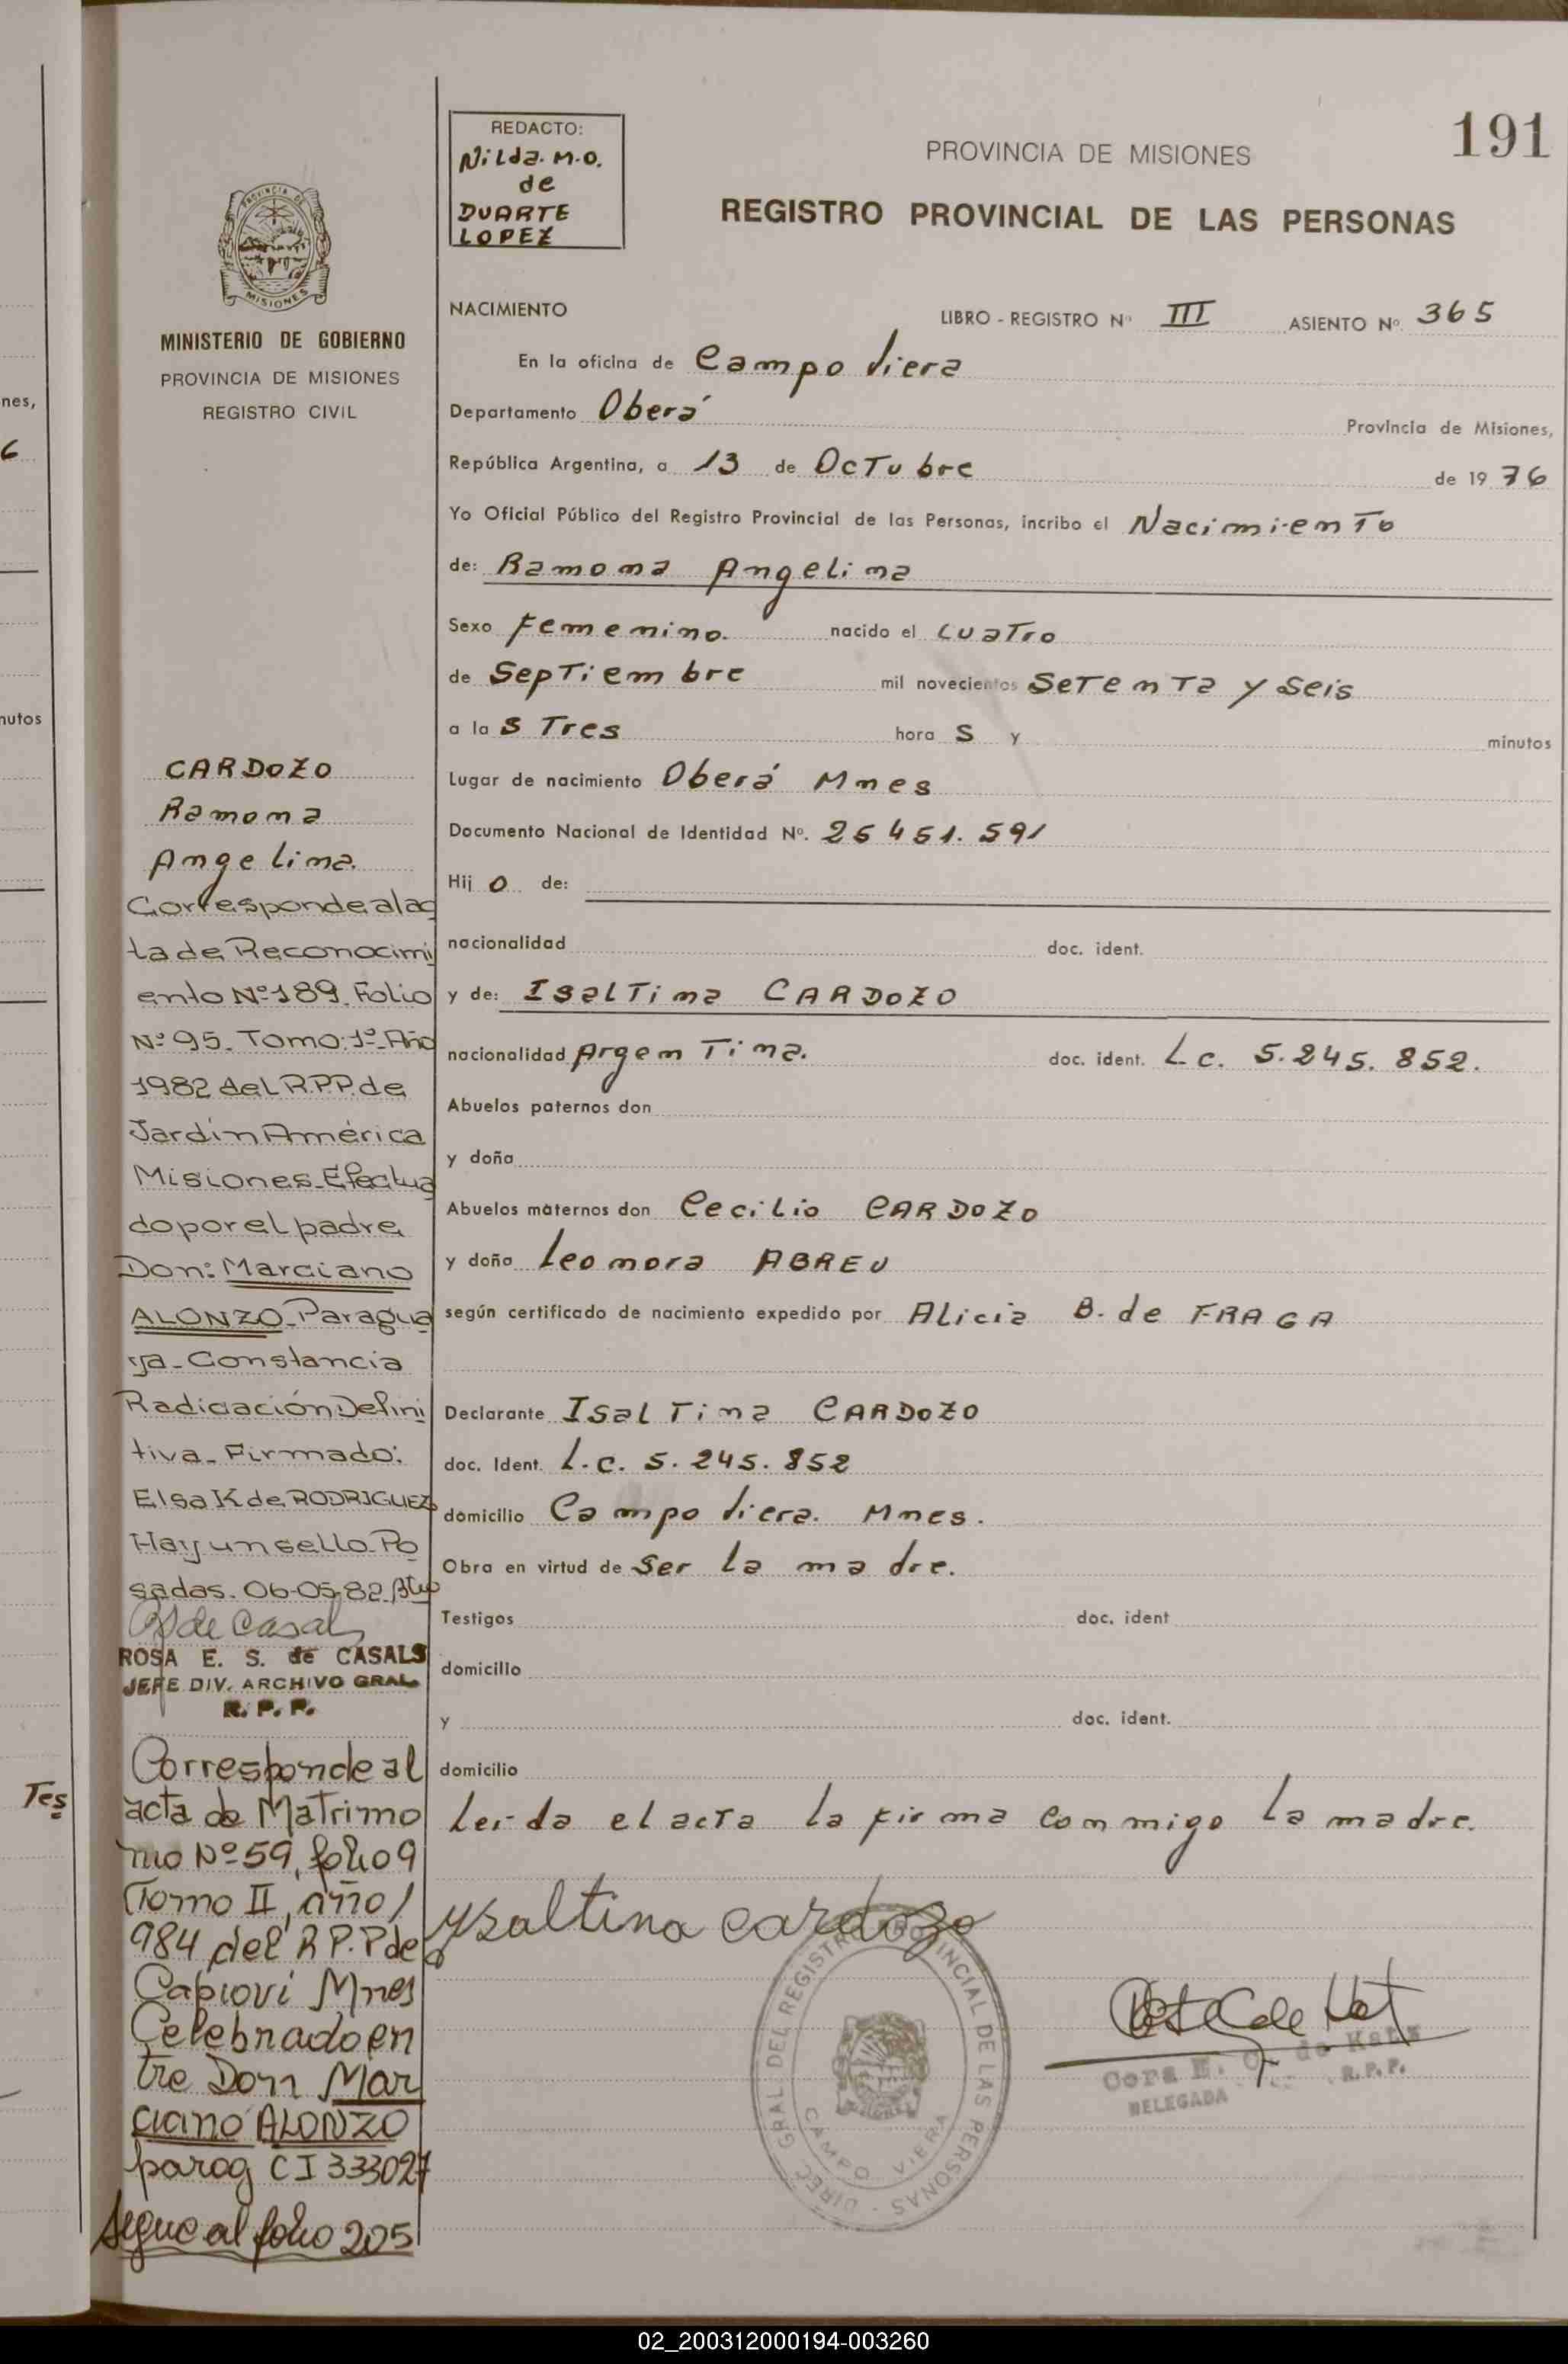 nes,
6
nutos
Tes
PROVINCIA DE
MISIONES
MINISTERIO DE GOBIERNO
PROVINCIA DE MISIONES
REGISTRO CIVIL
CARDOZO
Ramona
Angelina.
Correspondealac
ta de Reconocimi
ento Nº189. Folio
Nº 95. Tomo: 1º. Año
1982 del R.P.P. de
Jardín América
Misiones. Efectua
do por el padre
Don: Marciano
ALONZO. Paragua
ya. Constancia
Radicación Defini
tiva. Firmado:
Elsa K de RODRIGUEZ
Hay un sello. Po
sadas. 06-05-82
de Casals
ROSA E. S. de CASALS
JEFE DIV. ARCHIVO GRAL.
R. P. P.
Corresponde al
acta de Matrimo
nio Nº 59, folio 9
Tomo II, año 1
984 del R P.P de
Capiovi Mnes
Celebrado en
tre Don Mar
ciano ALONZO
parag CI 333027
Segue al folio 205
REDACTO:
Nilda. M.O.
de
DUARTE
LOPEZ
PROVINCIA DE MISIONES
191
REGISTRO PROVINCIAL DE LAS PERSONAS
NACIMIENTO LIBRO - REGISTRO Nº III ASIENTO Nº 365
En la oficina de Campo Viera
Departamento Oberá Provincia de Misiones,
República Argentina, a 13 de Octubre de 1976
Yo Oficial Público del Registro Provincial de las Personas, incribo el Nacimiento
de: Ramona Angelina
Sexo femenino. nacido el cuatro
de Septiembre mil novecientos Setenta y Seis
a las Tres horas y minutos
Lugar de nacimiento Oberá Mnes
Documento Nacional de Identidad Nº. 25 451. 591
Hijo de:
nacionalidad doc. ident.
y de: Isaltina CARDOZO
nacionalidad Argentina. doc. ident. L c. 5. 245. 852.
Abuelos paternos don
y doña
Abuelos maternos don Cecilio CARDOZO
y doña Leonora ABREU
según certificado de nacimiento expedido por Alicia B. de FRAGA
Declarante Isaltina CARDOZO
doc. Ident. L.c. 5. 245. 852
domicilio Campo Viera. Mnes.
Obra en virtud de ser la madre.
Testigos doc. ident
domicilio
y doc. ident.
domicilio
Leida el acta la firma conmigo la madre.
ysaltina cardozo
DIREC. GRAL. DEL REGISTRO PROVINCIAL DE LAS PERSONAS
CAMPO VIERA
Cora E. de Katz
DELEGADA R.P.P.
02_200312000194-003260